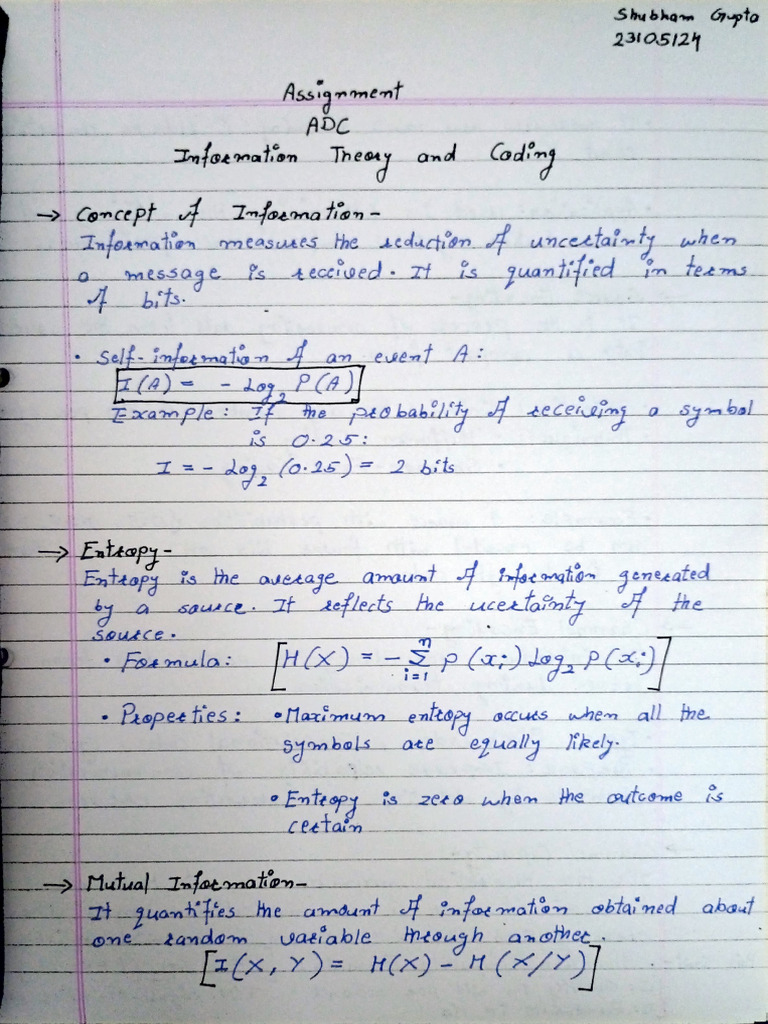 Shubham Gupta
23105124
Assignment
ADC
Information Theory and Coding
→ Concept of Information-
Information measures the reduction of uncertainty when
a message is received. It is quantified in terms
of bits.
• Self-information of an event A:
I(A) = - Log₂ P(A)
Example: If the probability of receiving a symbol
is 0.25:
I = - Log₂ (0.25) = 2 bits
→ Entropy-
Entropy is the average amount of information generated
by a source. It reflects the ucertainty of the
source.
• Formula: [H(X) = - Σⁿᵢ₌₁ P(xᵢ) Log₂ P(xᵢ)]
• Properties: • Maximum entropy occurs when all the
symbols are equally likely.
• Entropy is zero when the outcome is
certain
→ Mutual Information-
It quantifies the amount of information obtained about
one random variable through another.
[I(X, Y) = H(X) - H(X/Y)]